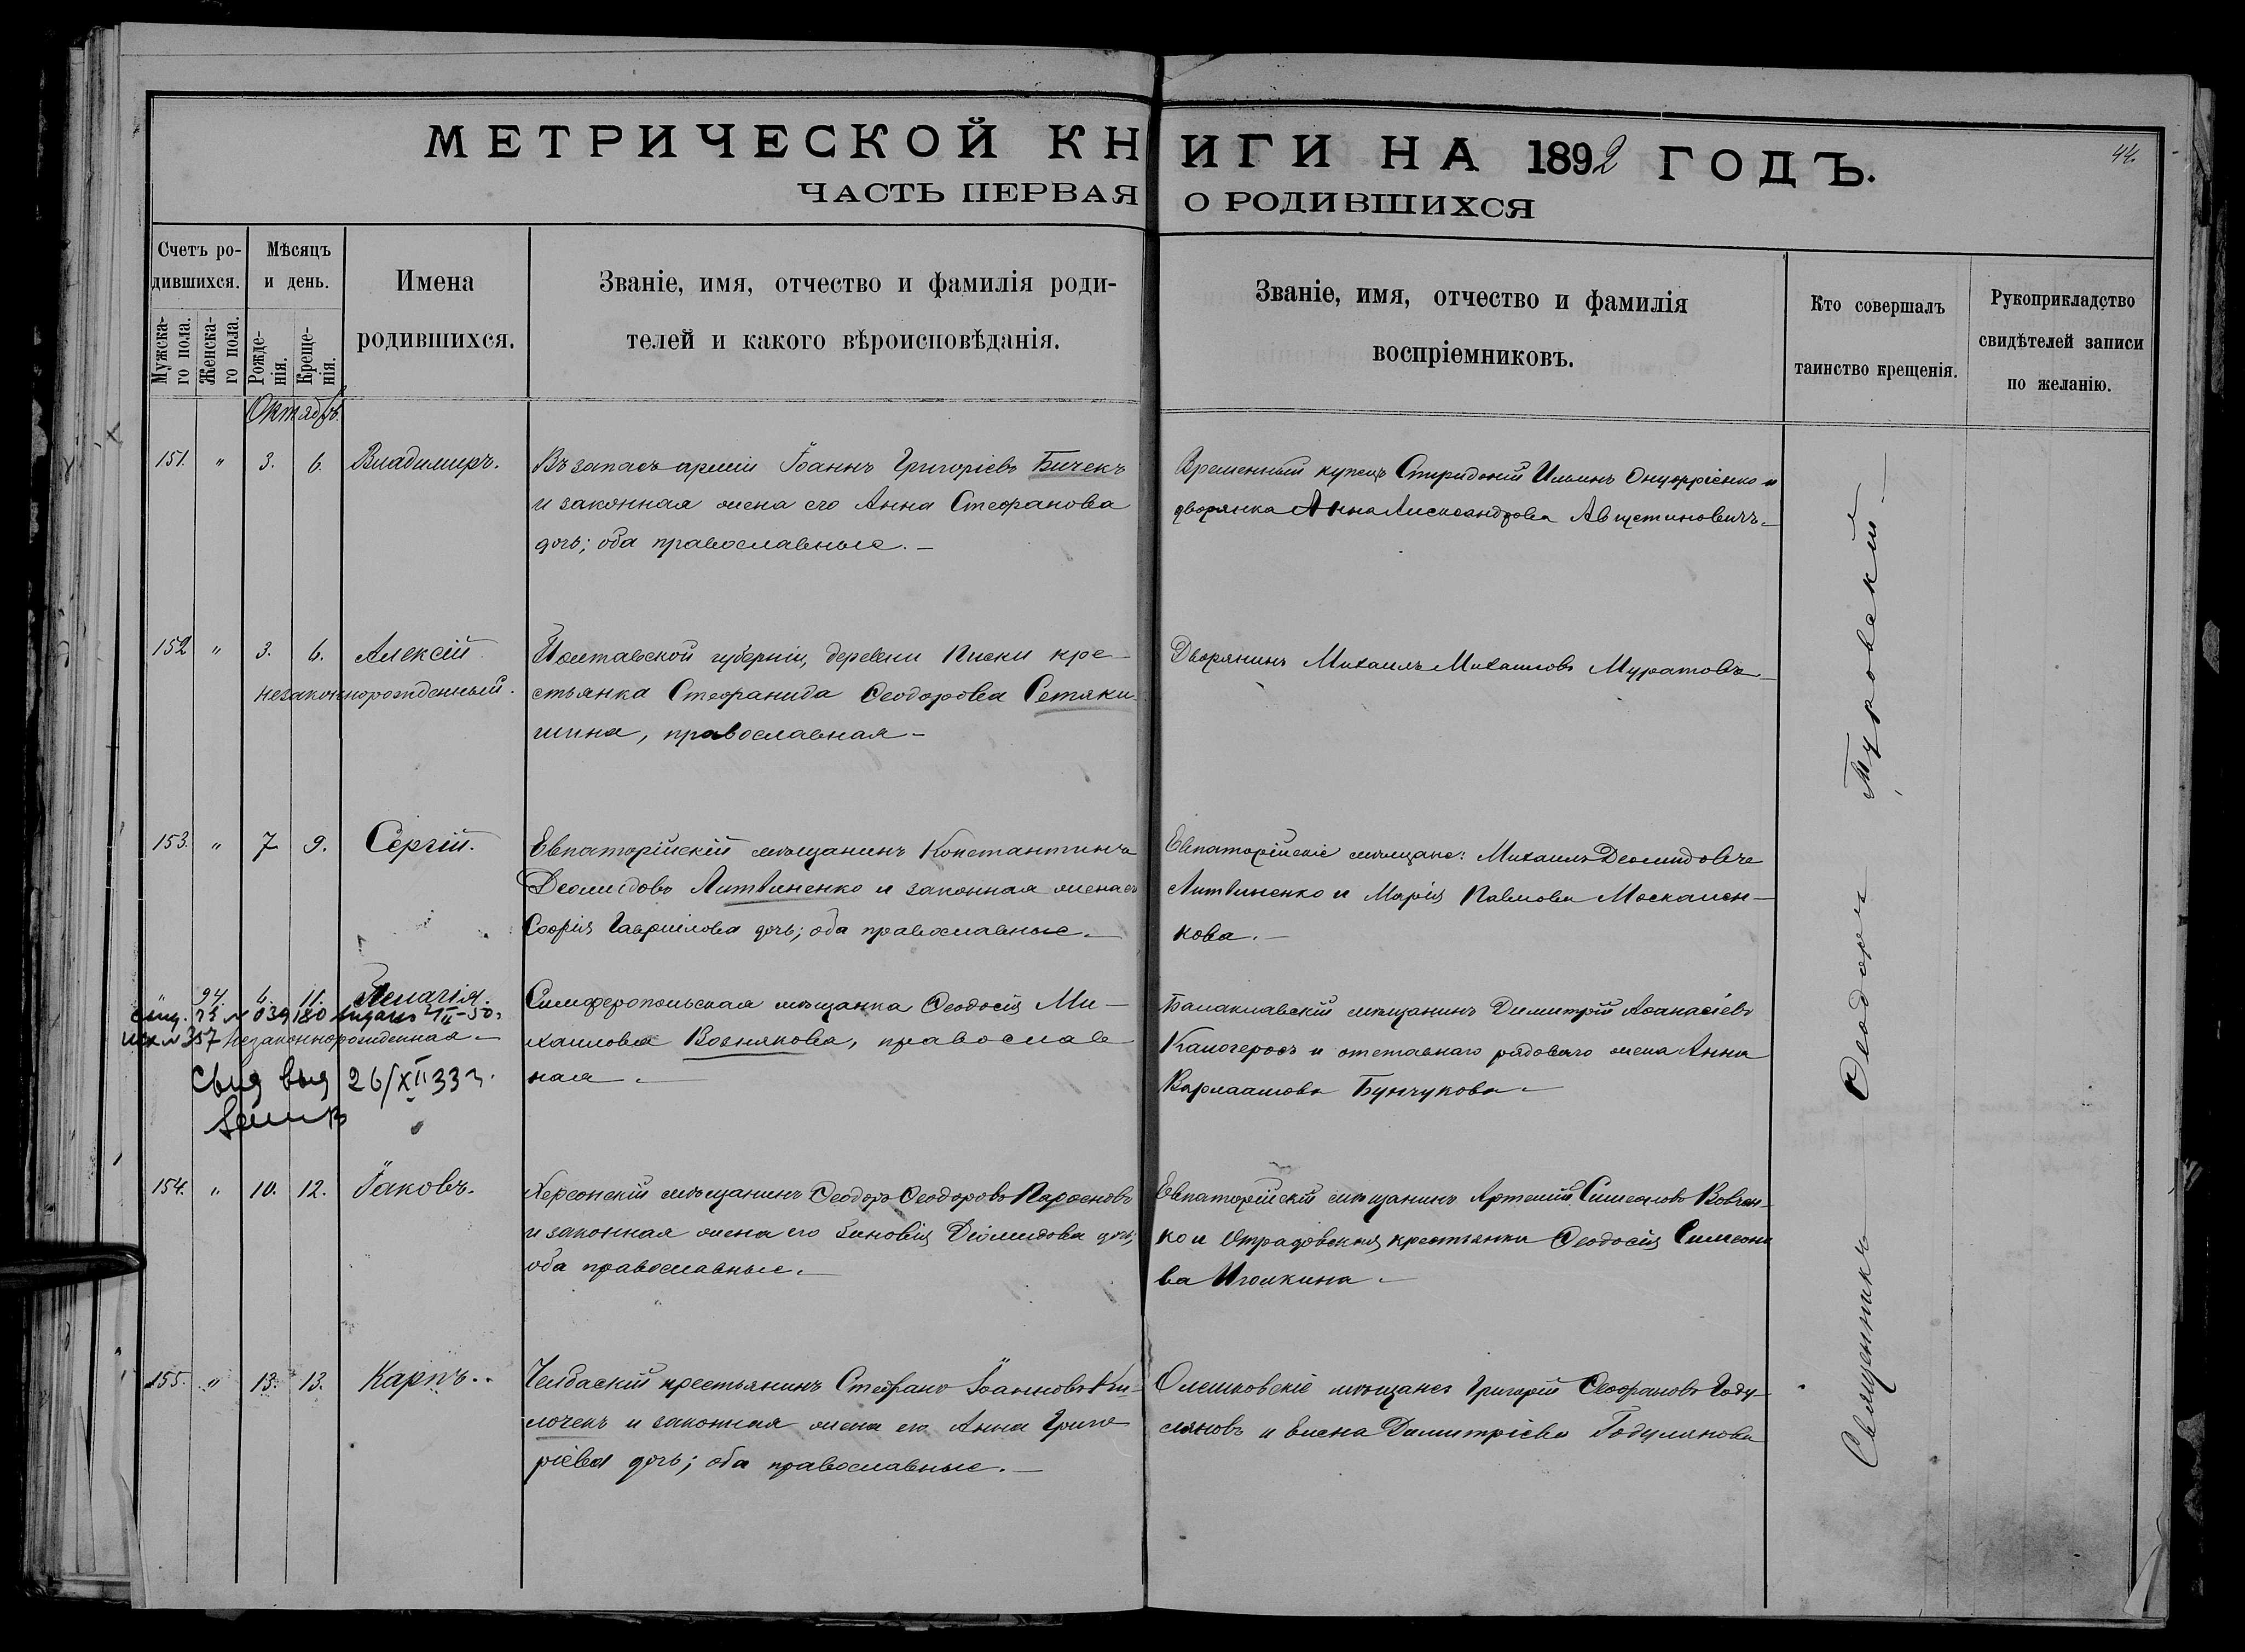 МЕТРИЧЕСКОЙ КНИГИ НА 1892 ГОДЪ.
44.
ЧАСТЬ ПЕРВАЯ О РОДИВШИХСЯ
Счетъ ро-
дившихся.
Мужска-
го пола.
Женска-
го пола.
Мѣсяцъ
и день.
Рожде-
нія.
Креще-
нія.
Имена
родившихся.
Званіе, имя, отчество и фамилія роди-
телей и какого вѣроисповѣданія.
Званіе, имя, отчество и фамилія
воспріемниковъ.
Кто совершалъ
таинство крещенія.
Рукоприкладство
свидѣтелей записи
по желанію.
Октябрь.
151. " 3. 6. Владимиръ.
Въ запасъ арміи Іоаннъ Григоріевъ Бичекъ
и законная жена его Анна Стефанова
дочь; оба православные.—
Временный купецъ Спиридоній Ильинъ Онуфріенко и
дворянка Анна Александрова Августиновичъ.
152 " 3. 6. Алексій
незаконнорожденный.
Полтавской губерніи, деревни Писки кре-
стьянка Стефанида Ѳеодорова Сетяки-
шина, православная—
Дворянинъ Михаилъ Михаиловъ Муратовъ
153. " 7 9. Сергій.
Евпаторійскій мѣщанинъ Константинъ
Деомидовъ Литвиненко и законная жена его
Софія Гавриилова дочь; оба православные.—
Евпаторійскіе мѣщане: Михаилъ Деомидовъ
Литвиненко и Марія Павлова Москален-
кова.—
" 94. 6. 11. Пелагія.
незаконнорожденная—
Симферопольская мѣщанка Ѳеодосія Ми-
хаилова Вознякова, православ
ная.—
Балаклавскій мѣщанинъ Димитрій Аѳанасіевъ
Калогеросъ и отставнаго рядоваго жена Анна
Варлаамова Бунчукова—
26/XII 33 г.
154. " 10. 12. Іаковъ.
Херсонскій мѣщанинъ Ѳеодоръ Ѳеодоровъ Парѳеновъ
и законная жена его Зиновія Діомидова дочь;
оба православные.—
Евпаторійскій мѣщанинъ Артемій Симеоновъ Вовчен-
ко и Отрадовская крестьянка Ѳеодосія Симеоно
ва Иголкина.—
155. " 13. 13. Карпъ..
Челбаскій крестьянинъ Стефанъ Іоанновъ Ки-
лочекъ и законная жена его Анна Григо
ріева дочь; оба православные.—
Олешковскіе мѣщане Григорій Ѳеофановъ Году-
ляновъ и Елена Димитріева Годулянова
Священникъ Ѳеодоръ Туровскій—